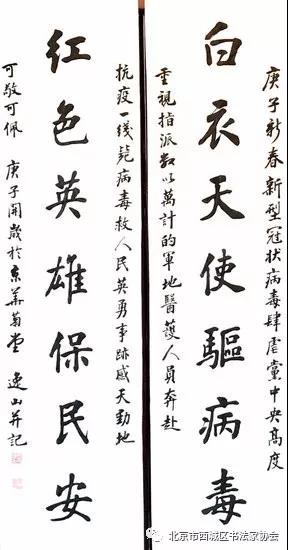 庚子新春新型冠状病毒肆虐黨中央高度
白衣天使驅病毒
重視指派数以萬計的軍地醫護人員奔赴
抗疫一线毙病毒救人民英勇事跡感天动地
红色英雄保民安
可敬可佩 庚子開歲於京華菊堂 逸山并記
北京市西城区书法家协会